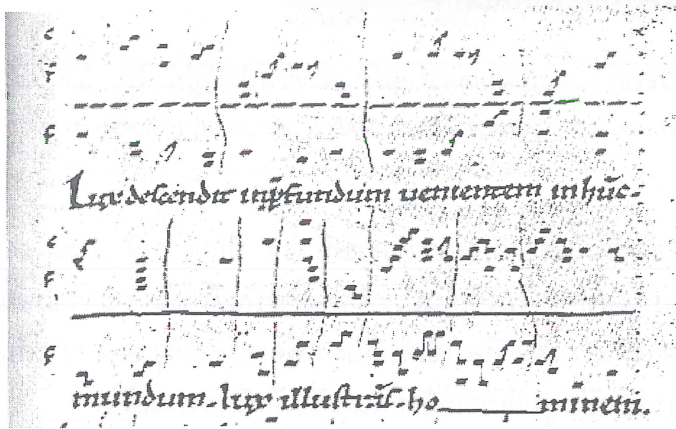 Lux descendit in ꝓfundum uenientem in hūc-
mundum-lux illustrās-ho minem.